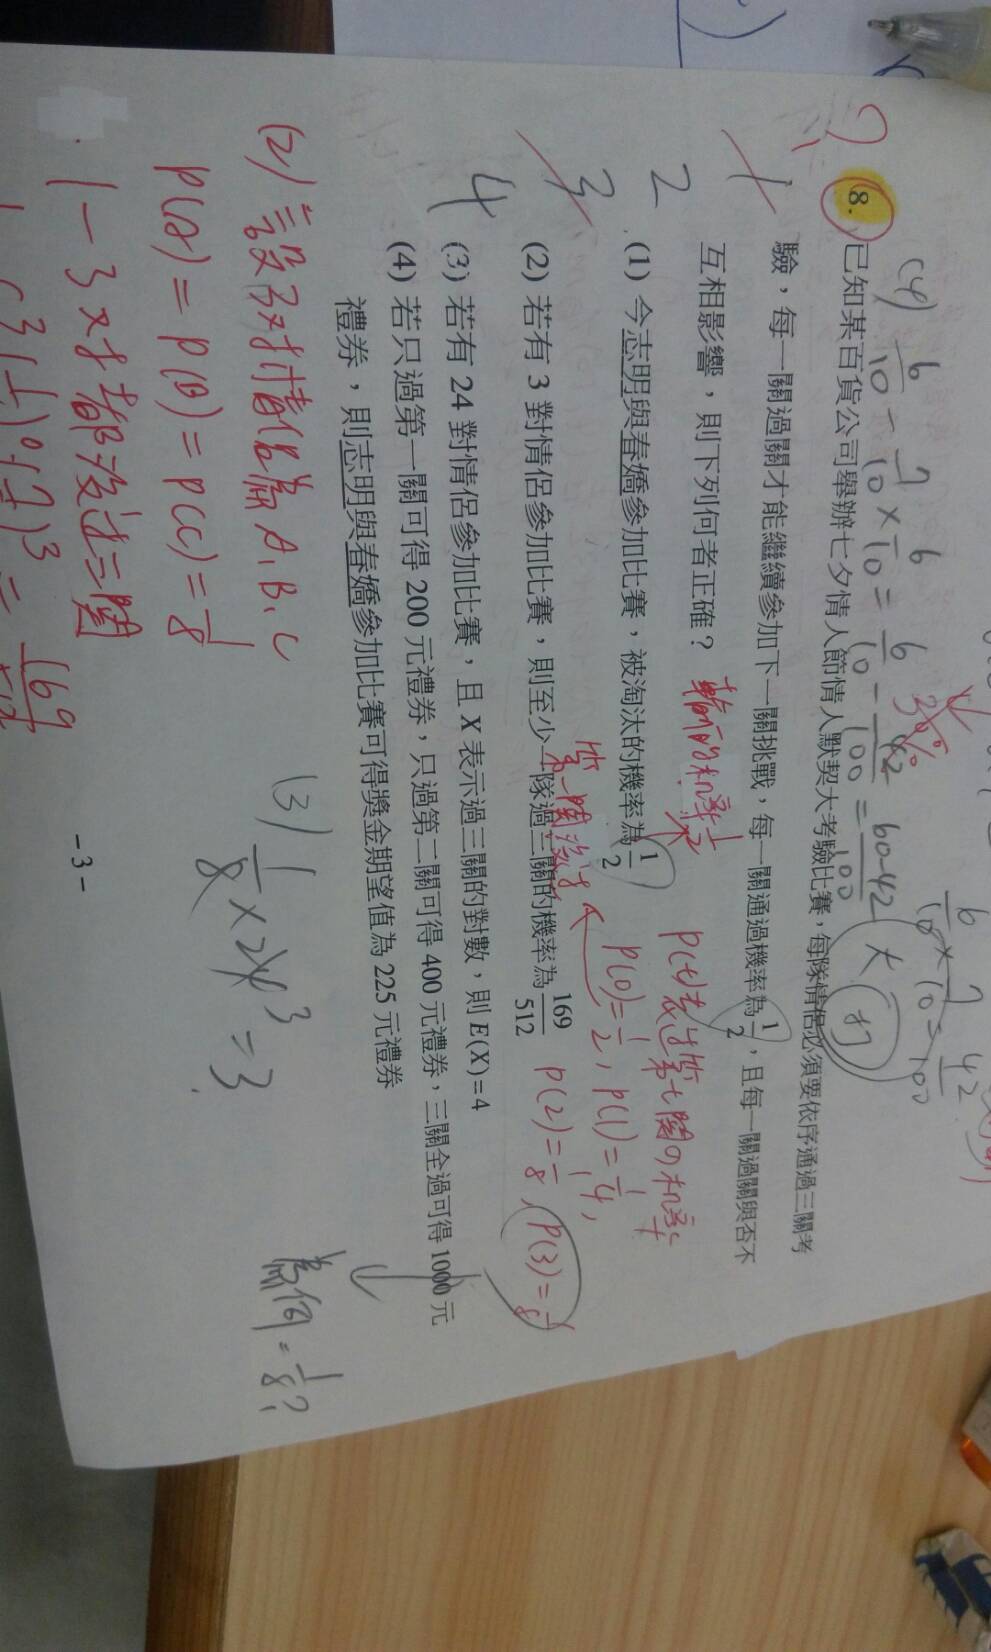 (4) 6/10 - 7/10 × 6/10 = 6/10 - 42/100 = 60-42/100
6/10 × 7/10 = 42/100
8. 已知某百貨公司舉辦七夕情人節情人默契大考驗比賽，每隊情侶必須要依序通過三關考
驗，每一關過關才能繼續參加下一關挑戰，每一關通過機率為1/2，且每一關過關與否不
互相影響，則下列何者正確？
輸的机率1/2
1
2
3
4
(1) 今志明與春嬌參加比賽，被淘汰的機率為1/2
P(0)=1/2, P(1)=1/4,
P(2)=1/8, P(3)=1/8
(2) 若有 3 對情侶參加比賽，則至少一隊過三關的機率為169/512
(3) 若有 24 對情侶參加比賽，且 X 表示過三關的對數，則 E(X)=4
(4) 若只過第一關可得 200 元禮券，只過第二關可得 400 元禮券，三關全過可得 1000 元
禮券，則志明與春嬌參加比賽可得獎金期望值為 225 元禮券
(2) 設3对情侶為 A,B,C
P(A)=P(B)=P(C)=1/8
1-3对都沒过三関
169
(3) 1/8 × 24 3 = 3
為何=1/8?
- 3 -